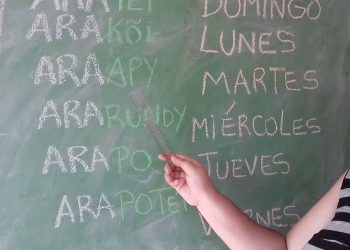 ARATEI DOMINGO
ARAKÕI LUNES
ARAAPY MARTES
ARARUNDY MIÉRCOLES
ARAPO TUEVES
ARAPOTE